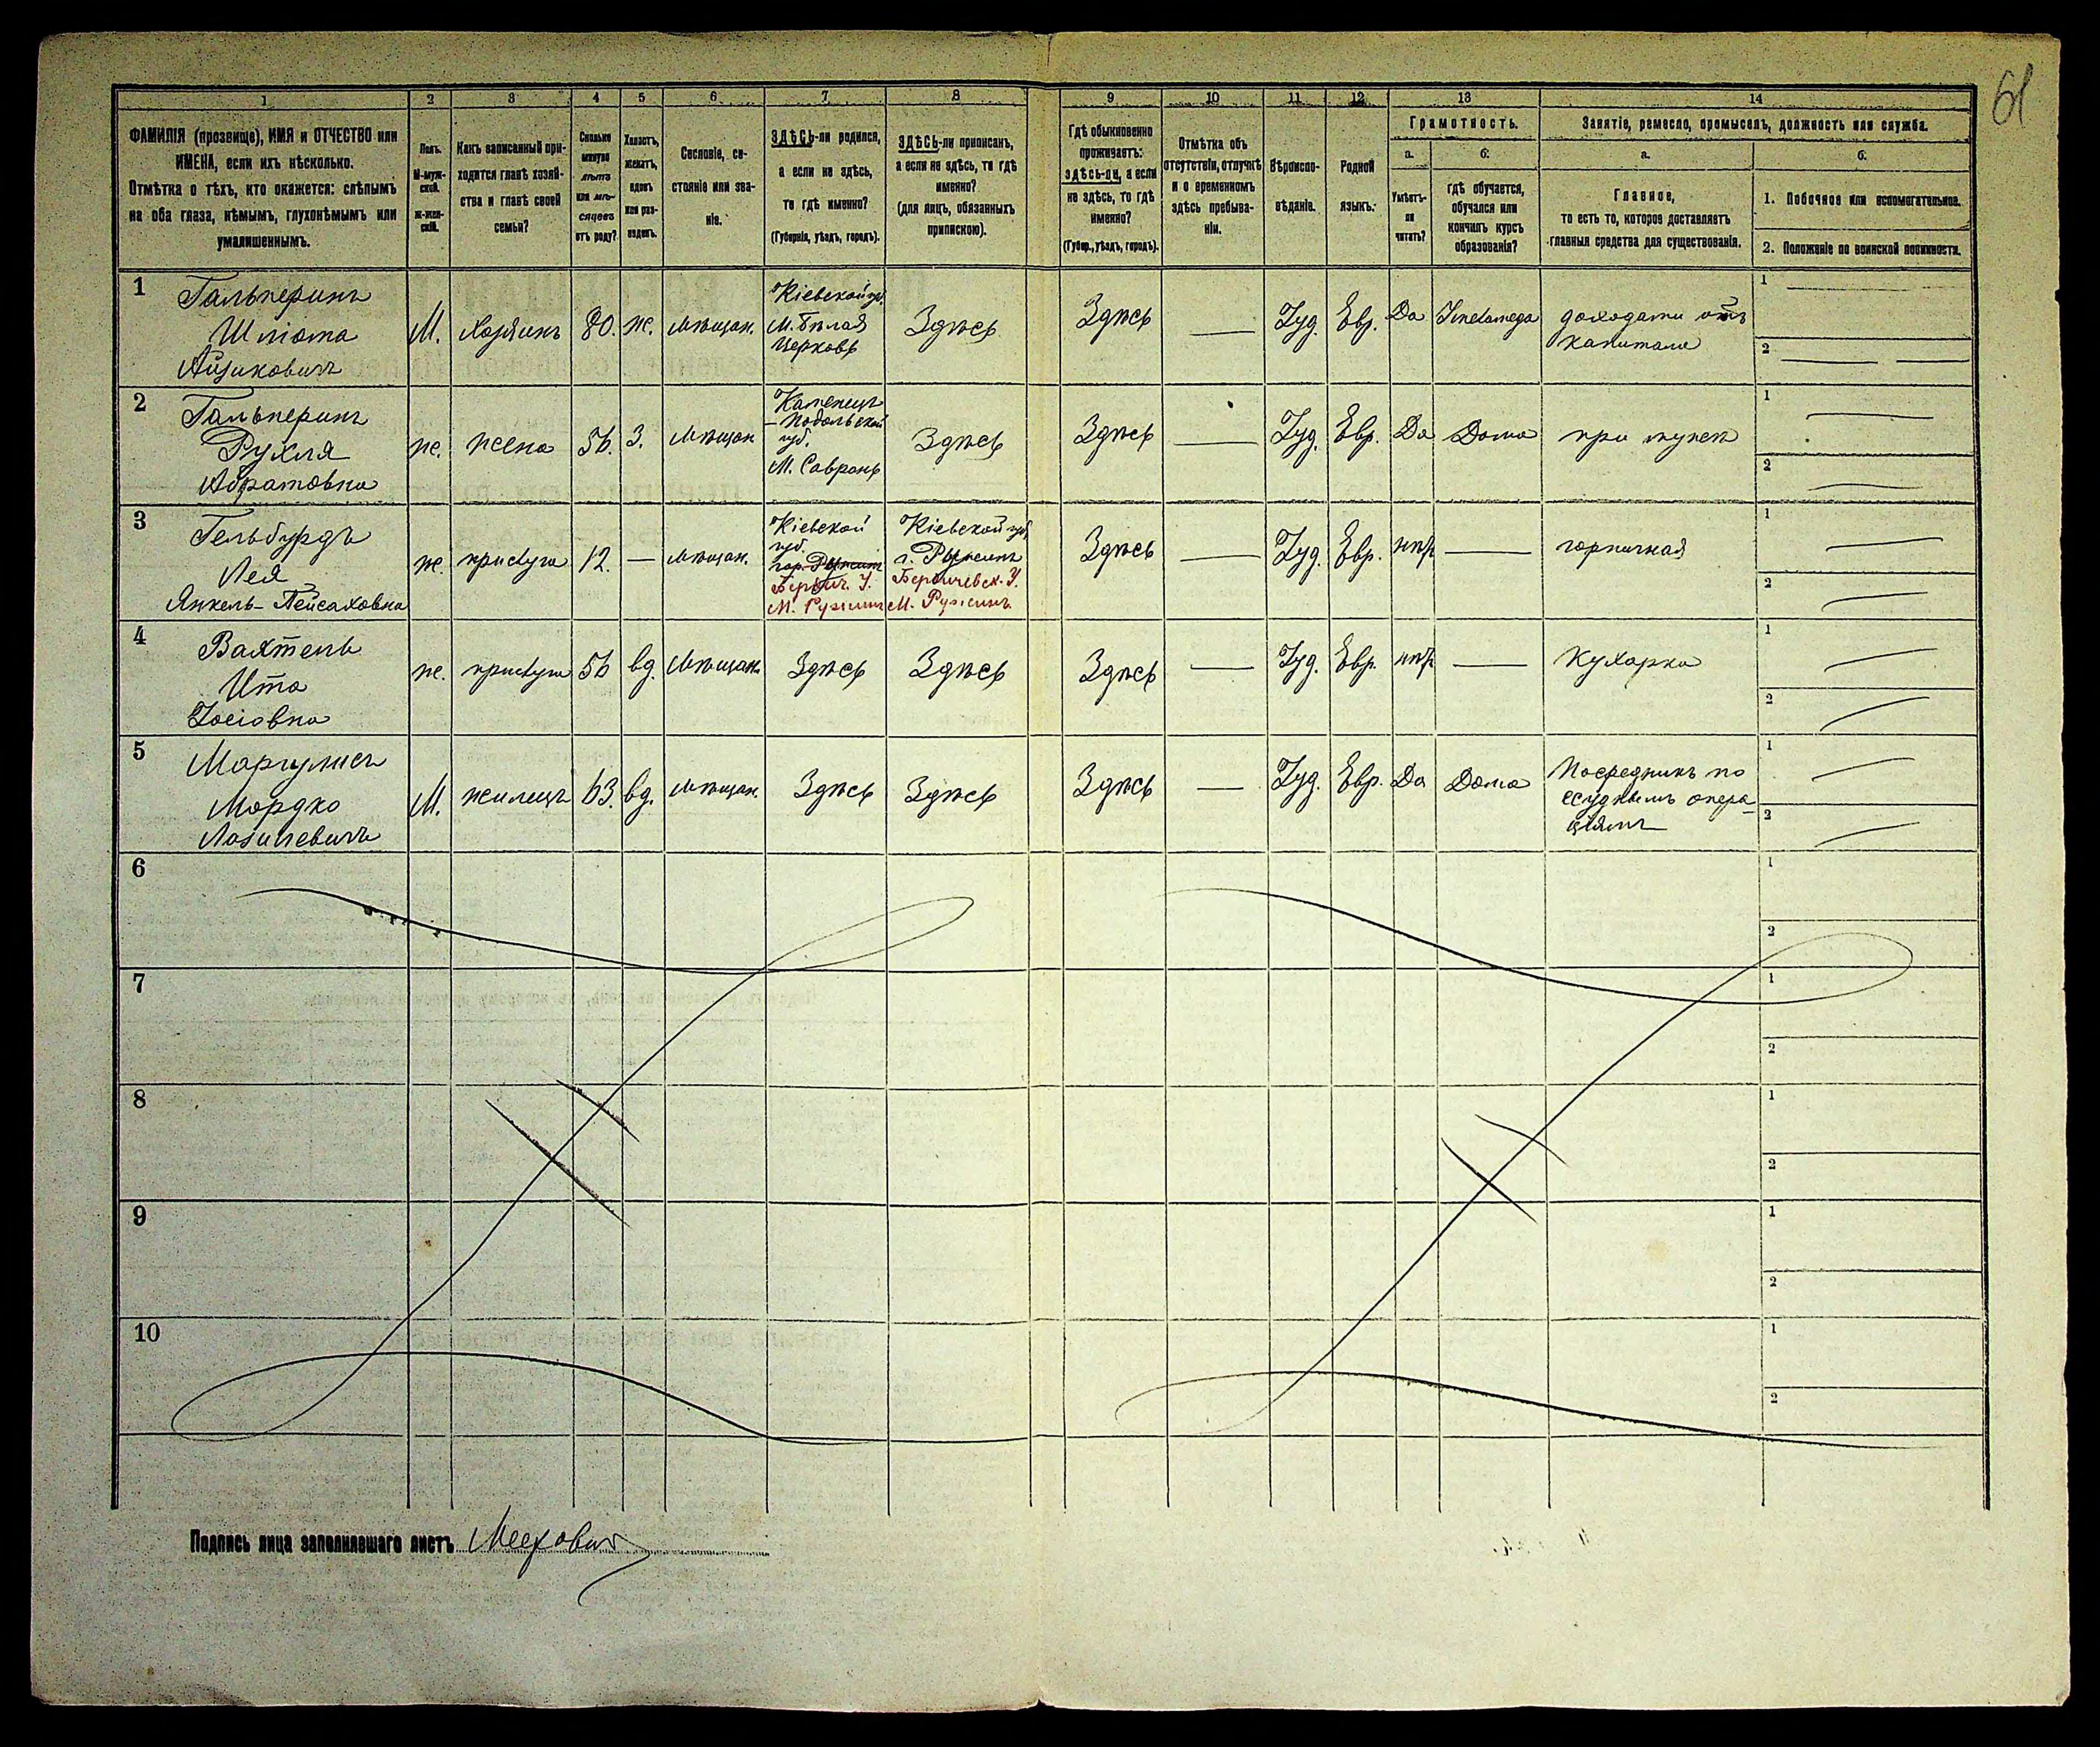 61
1 2 3 4 5 6 7 8 9 10 11 12 13 14
ФАМИЛІЯ (прозвище), ИМЯ и ОТЧЕСТВО или
ИМЕНА, если ихъ нѣсколько.
Отмѣтка о тѣхъ, кто окажется: слѣпымъ
на оба глаза, нѣмымъ, глухонѣмымъ или
умалишеннымъ.
Полъ.
М-муж-
ской.
Ж-жен-
скій.
Какъ записанный при-
ходится главѣ хозяй-
ства и главѣ своей
семьи?
Сколько
минуло
лѣтъ
или мѣ-
сяцевъ
отъ роду?
Холостъ,
женатъ,
вдовъ
или раз-
веденъ.
Сословіе, со-
стояніе или зва-
ніе.
ЗДѢСЬ-ли родился,
а если не здѣсь,
то гдѣ именно?
(Губернія, уѣздъ, городъ).
ЗДѢСЬ-ли приписанъ,
а если не здѣсь, то гдѣ
именно?
(для лицъ, обязанныхъ
припискою).
Гдѣ обыкновенно
проживаетъ:
здѣсь-ли, а если
не здѣсь, то гдѣ
именно?
(Губер., уѣздъ, городъ).
Отмѣтка объ
отсутствіи, отлучкѣ
и о временномъ
здѣсь пребыва-
ніи.
Вѣроиспо-
вѣданіе.
Родной
языкъ.
Грамотность.
а.
Умѣетъ-
ли
читать?
б.
гдѣ обучается,
обучался или
кончилъ курсъ
образованія?
Занятіе, ремесло, промыселъ, должность или служба.
а.
Главное,
то есть то, которое доставляетъ
главныя средства для существованія.
б.
1. Побочное или вспомогательное.
2. Положеніе по воинской повинности.
1 Гальперинъ
Шліома
Айзиковичъ
М. хозяинъ 80. ж. мѣщан.
Кіевской губ.
М. Бѣлая
Церковь
Здѣсь Здѣсь — Іуд. Евр. Да
доходами отъ
капитала
1
2
2 Гальперинъ
Рухля
Абрамовна
ж. жена 56. З. мѣщан
Каменецъ
-Подольской
губ.
М. Саврань
Здѣсь Здѣсь — Іуд. Евр. Да Дома при мужѣ
1
2
3 Гельбурдъ
Лея
Янкель-Пейсаховна
ж. прислуга 12. — мѣщан.
Кіевской
губ.
гор. Ружинъ
Бердич. У.
М. Ружинъ
Кіевской губ.
г. Ружинъ
Бердичевск. У.
М. Ружинъ
Здѣсь — Іуд. Евр. нѣтъ — горничная
1
2
4 Вахтель
Ита
Іосіовна
ж. прислуга 56 вд. мѣщан.
Здѣсь Здѣсь Здѣсь — Іуд. Евр. нѣтъ — кухарка
1
2
5 Маргулисъ
Мордко
Лазилевичъ
М. жилецъ 63. вд. мѣщан.
Здѣсь Здѣсь Здѣсь — Іуд. Евр. Да Дома
Посредникъ по
ссуднымъ опера-
ціямъ
1
2
6
1
2
7
1
2
8
1
2
9
1
2
10
1
2
Подпись лица заполнявшаго листъ